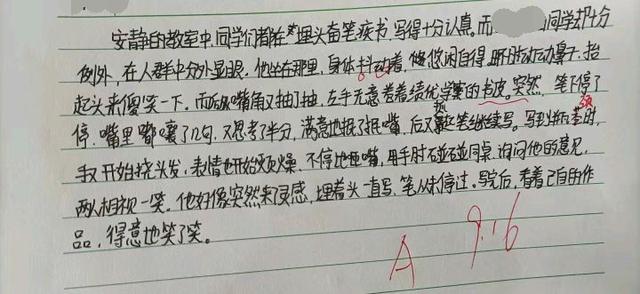 安静的教室中,同学们都在埋头奋笔疾书,写得十分认真。而同学却十分
例外,在人群中分外显眼。他坐在那里,身体抖动着,悠闲自得,时时动动鼻子,抬
起头来傻笑一下。而后嘴角又抽了抽,左手无意卷着绩优学案的书皮。突然,笔下停了
停,嘴里嘟囔了几句,又思考了半分,满意地抿了抿嘴,后又拿起笔继续写。写到时,
又开始挠头发,表情也开始烦燥,不停地咂嘴,用手肘碰碰同桌,询问他的意见,
两人相视一笑。他好像突然来了灵感,埋着头一直写,笔从未停过。写完后,看着自己的作
品,得意地笑了笑。
A 9.16